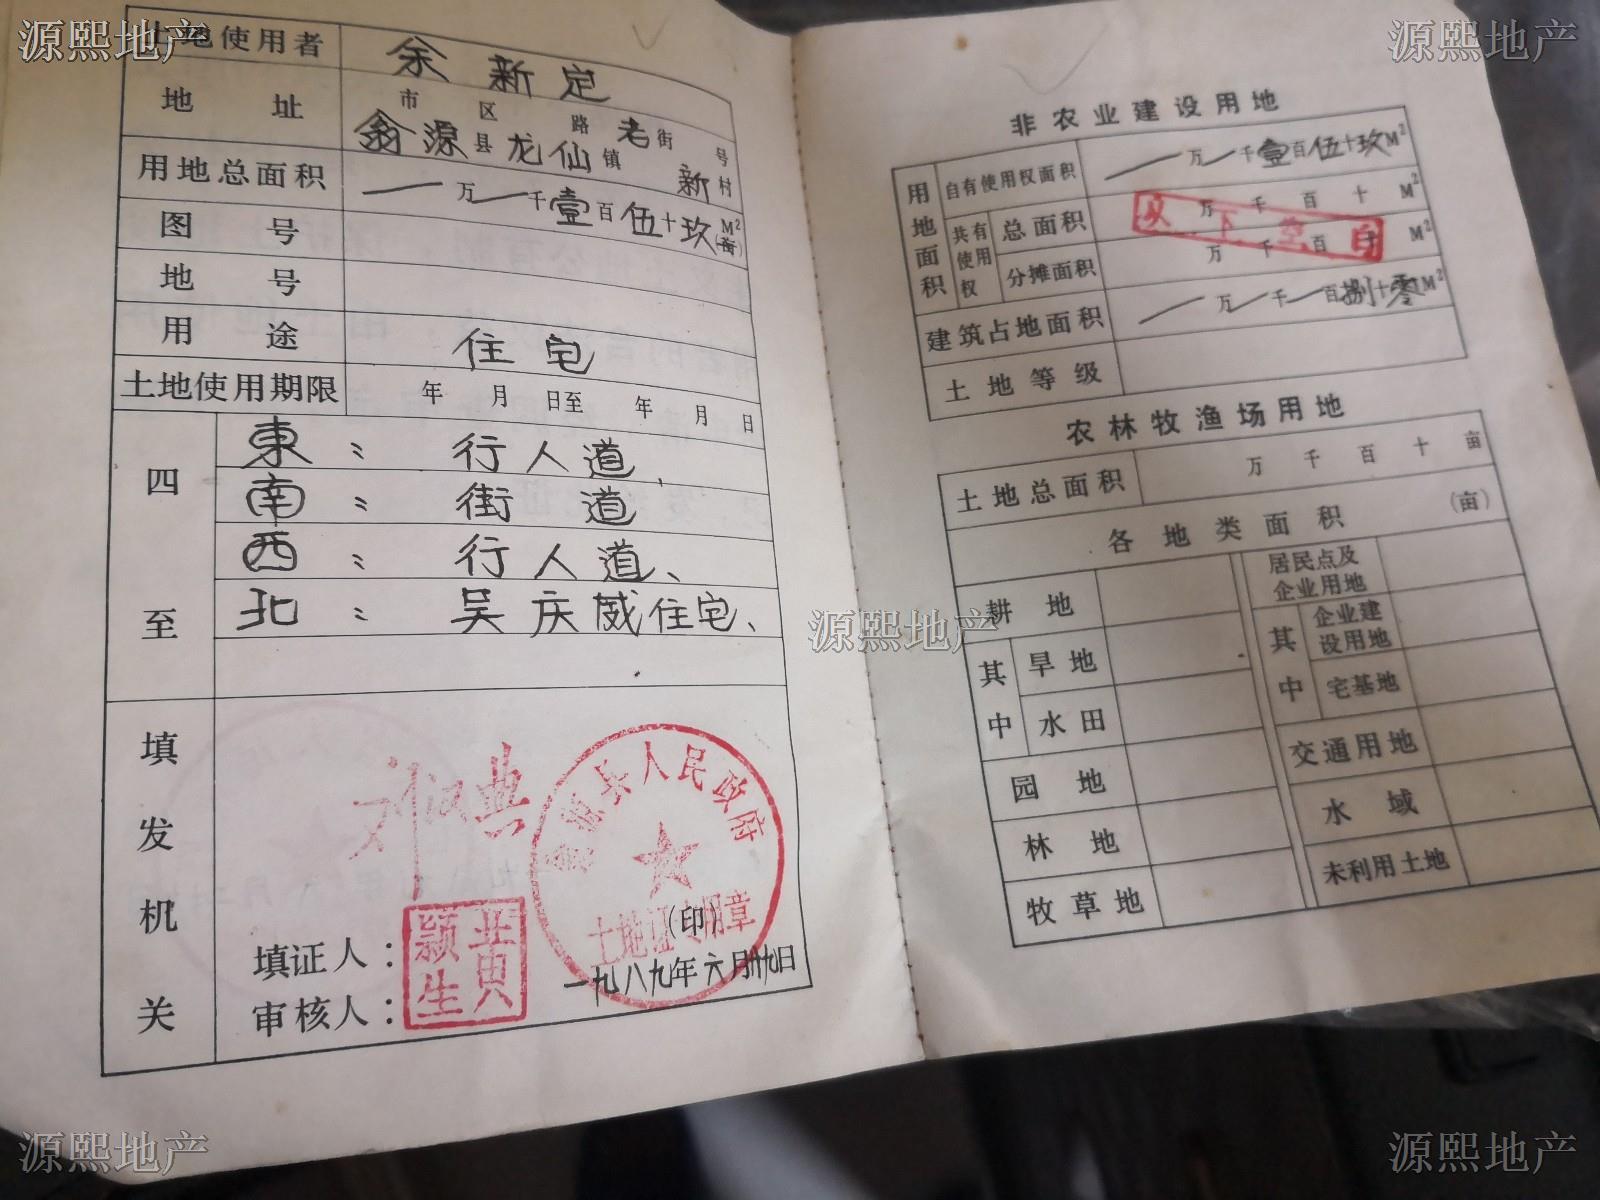 源熙地产
源熙地产
土地使用者 余新定
地址 市 区 路 老街 号
翁源县龙仙镇 新村
用地总面积 一万一千壹百伍十玖M²(亩)
图号
地号
用途 住宅
土地使用期限 年 月 日至 年 月 日
四至
東: 行人道、
南: 街道
西: 行人道、
北: 吴庆威住宅、
填发机关
翁源县人民政府
土地证专用章
(印)
填证人:
审核人:
黄颖生
一九八九年六月廿九日
非农业建设用地
用地面积
自有使用权面积 一万一千壹百伍十玖M²
共有使用权
总面积 万 千 百 十 M²
以下空白
分摊面积 万 千 百 十 M²
建筑占地面积 一万一千一百捌十零M²
土地等级
农林牧渔场用地
土地总面积 万 千 百 十 亩
各地类面积 (亩)
耕地 居民点及企业用地
其中 旱地 其中 企业建设用地
水田 宅基地
园地 交通用地
林地 水域
牧草地 未利用土地
源熙地产
源熙地产
源熙地产